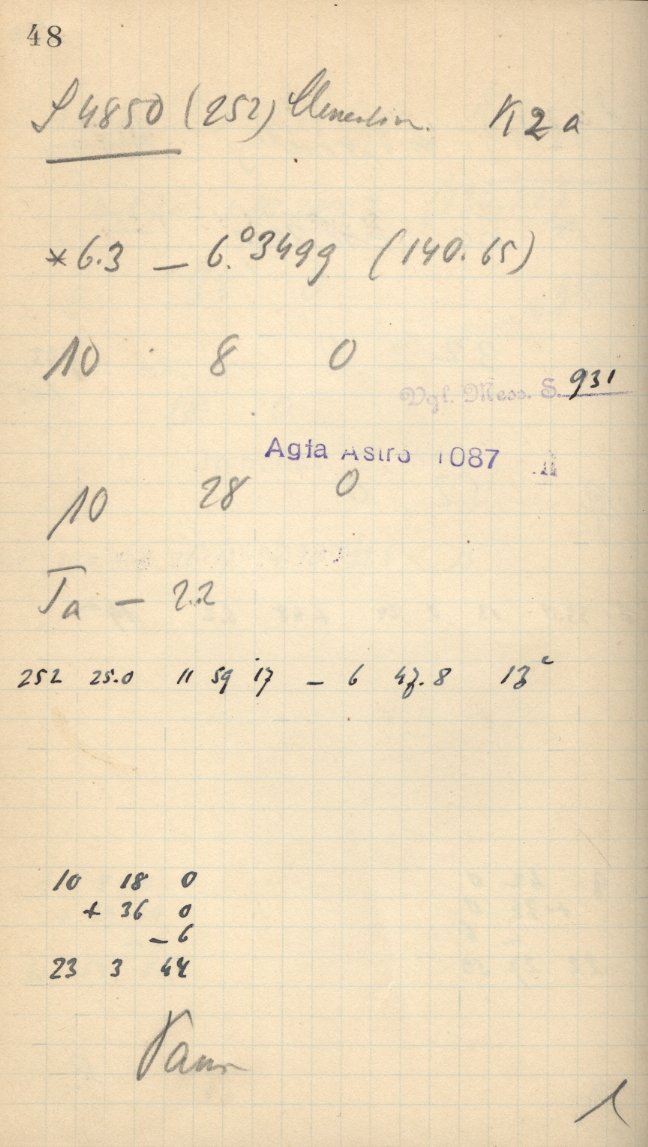 48
S 4850 (252) Clementina. K2a
*6.3 — 6.°3499 (140.65)
10 8 0
Vgl. Mess. S. 931
Agfa Astro 1087
10 28 0
Ta — 22
252 25.0 11 59 17 — 6 47.8 13
10 18 0
+ 36 0
— 6
23 3 44